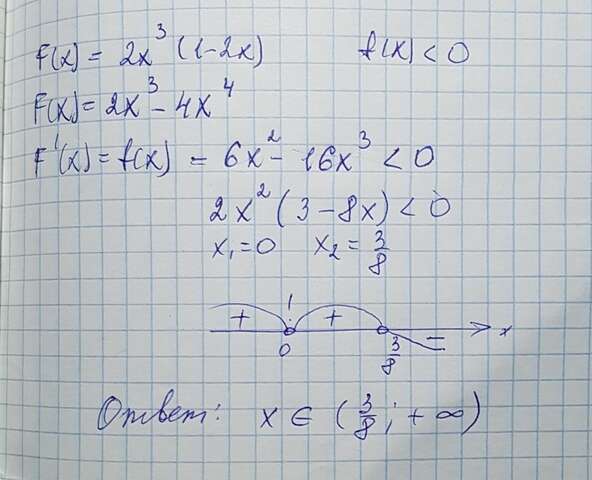 F(x) = 2x³ (1-2x) f(x) < 0
F(x) = 2x³ - 4x⁴
F'(x) = f(x) = 6x² - 16x³ < 0
2x² (3 - 8x) < 0
x₁ = 0 x₂ = 3/8
+ + -
0 3/8 x
Ответ: x ∈ (3/8; + ∞)